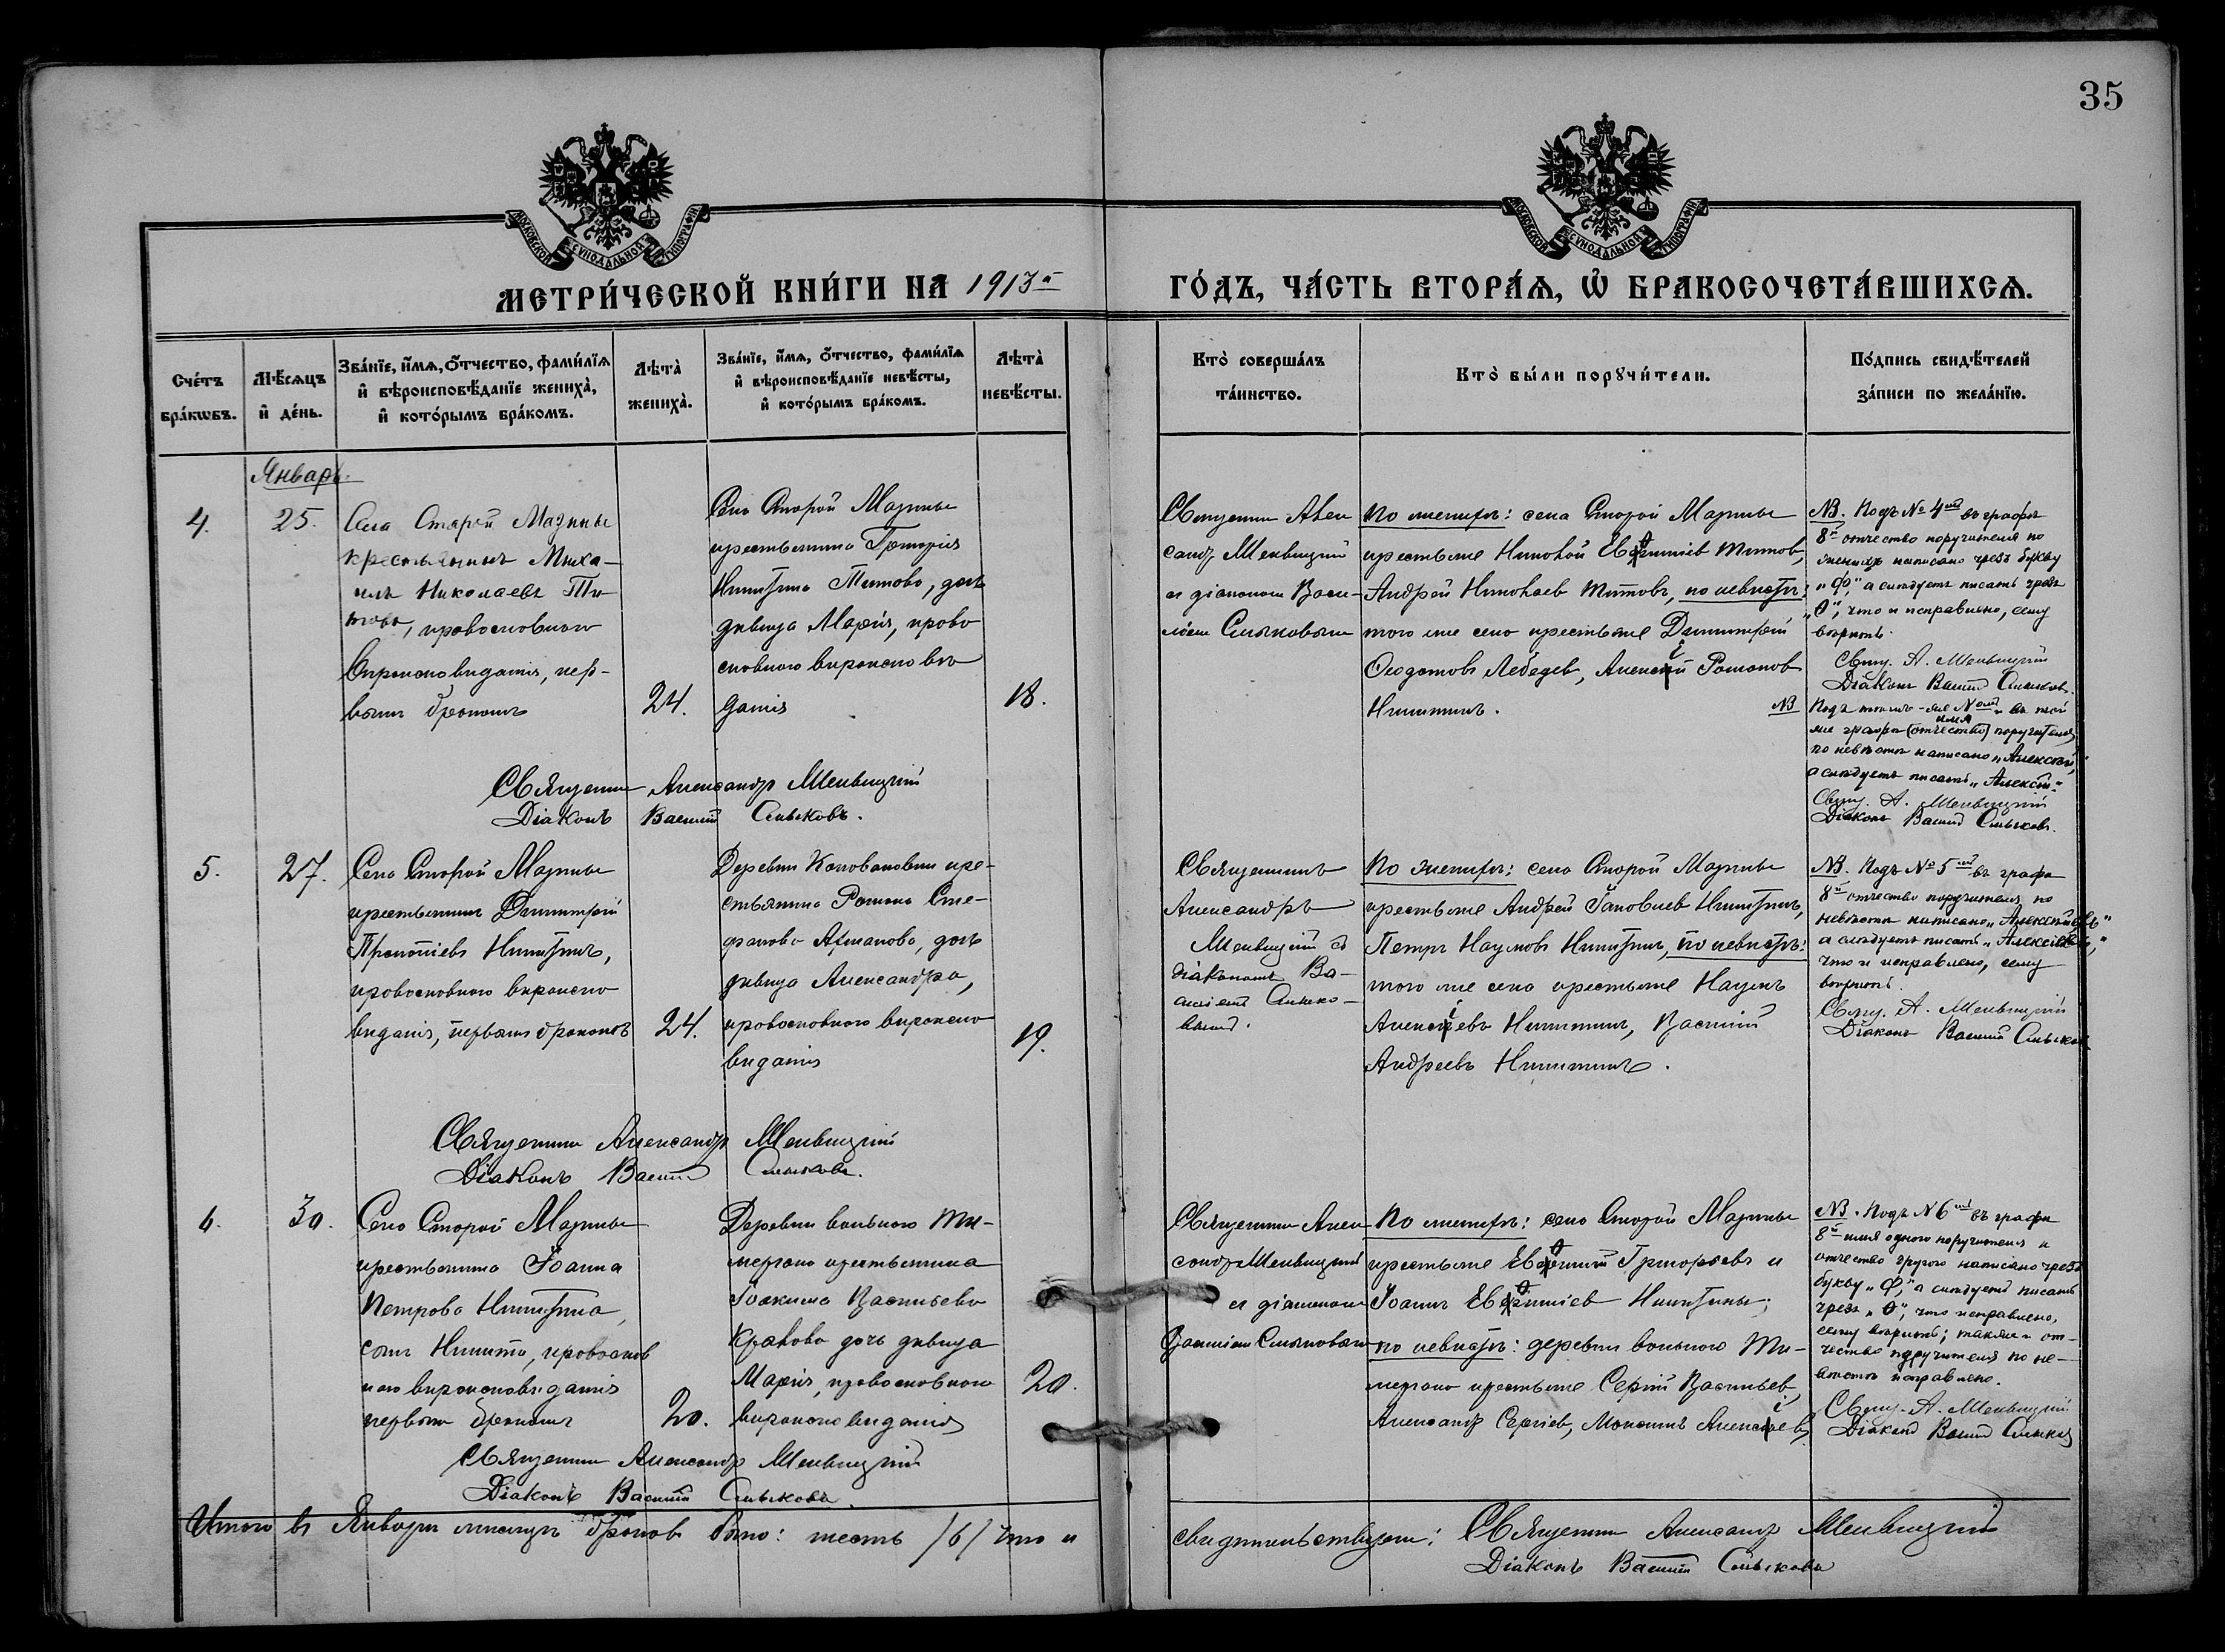 35
МОСКОВСКОЙ СУНОДАЛЬНОЙ ТИПОГРАФІИ
МОСКОВСКОЙ СУНОДАЛЬНОЙ ТИПОГРАФІИ
МЕТРИ́ЧЕСКОЙ КНИ́ГИ НА 1913й
ГО́ДЪ, ЧА́СТЬ ВТОРА́Ѧ, Ѽ БРАКОСОЧЕТА́ВШИХСѦ.
Сче́тъ
бра́кѡвъ.
Мѣ́сѧцъ
и҆ де́нь.
Зва́нїе, и҆́мѧ, ѻ҆́тчество, фами́лїѧ
и҆ вѣроисповѣ́данїе жениха̀,
и҆ кото́рымъ бра́комъ.
Лѣта̀
жениха̀.
Зва́нїе, и҆́мѧ, ѻ҆́тчество, фами́лїѧ
и҆ вѣроисповѣ́данїе невѣ́сты,
и҆ кото́рымъ бра́комъ.
Лѣта̀
невѣ́сты.
Кто̀ соверша́лъ
та́инство.
Кто̀ бы́ли порꙋчи́тели.
По́дпись свидѣ́телей
за́писи по жела́нїю.
Январь.
4.
25.
Села Старой Мазины
крестьянинъ Миха-
илъ Николаевъ Ти-
товъ, православнаго
вѣроисповѣданія, пер-
вымъ бракомъ
24.
Села Старой Мазины
крестьянина Григорія
Никитина Титова, дочь
дѣвица Марія, право
славнаго вѣроисповѣ
данія
18.
Священникъ Алек
сандръ Мельвицкій
съ діакономъ Васи-
ліемъ Смысковымъ
По женихѣ: села Старой Мазины
крестьяне Николай Евѳиміев Титовъ,
Андрей Николаев Титовъ, по невѣстѣ:
того же села крестьяне Димитрій
Ѳедотовъ Лебедев, Алексій Романовъ
Никитинъ.
NB. Подъ № 4мъ въ графѣ
8й отчество поручителя по
женихѣ написано чрезъ букву
„Ф“, а слѣдуетъ писать чрезъ
„Ѳ“, что и исправлено, сему
вѣрить.
Свящ. А. Мельвицкій
Діаконъ Василій Смысковъ.
NB Подъ тѣмъ-же №омъ въ той
же графѣ (отчество) имя поручителя
по невѣстѣ написано „Алексѣй“,
а слѣдуетъ писать „Алексій“
Свящ. А. Мельвицкій
Діаконъ Василій Смысковъ.
Священникъ Александръ Мельвицкій
Діаконъ Василій Смысковъ.
5.
27.
Села Старой Мазины
крестьянинъ Димитрій
Прокопіевъ Никитинъ,
православнаго вѣроиспо
вѣданія, первымъ бракомъ
24.
Деревни Коповановки кре-
стьянина Романа Сте-
фанова Атманова, дочь
дѣвица Александра,
православнаго вѣроиспо
вѣданія
19.
Священникъ
Александръ
Мельвицкій съ
діакономъ Ва-
силіемъ Смыско-
вымъ.
По женихѣ: села Старой Мазины
крестьяне Андрей Іаковлев Никитинъ,
Петръ Наумовъ Никитинъ, по невѣстѣ:
того же села крестьяне Наумъ
Алексіевъ Никитинъ, Василій
Андреевъ Никитинъ.
NB. Подъ № 5мъ въ графѣ
8й отчество поручителя по
невѣстѣ написано „Алексѣевъ“
а слѣдуетъ писать „Алексіевъ“,
что и исправлено, сему
вѣрить.
Свящ. А. Мельвицкій
Діаконъ Василій Смысков
Священникъ Александръ Мельвицкій
Діаконъ Василій Смысковъ.
6.
30.
Села Старой Мазины
крестьянина Іоанна
Петрова Никитина,
сынъ Никита, православ
наго вѣроисповѣданія
первымъ бракомъ
20.
Деревни вольнаго Ти-
мерзяна крестьянина
Іоакима Васильева
Кракова дочь дѣвица
Марія, православнаго
вѣроисповѣданія
20.
Священникъ Алек
сандръ Мельвицкій
съ діакономъ
Василіемъ Смысковымъ
По женихѣ: села Старой Мазины
крестьяне Евѳимій Григорьевъ и
Іоаннъ Евѳиміев Никитины;
по невѣстѣ: деревни вольнаго Ти-
мерзяна крестьяне Сергій Васильев,
Александръ Сергіев, Максимъ Алексіев.
NB. Подъ № 6мъ въ графѣ
8й имя одного поручителя и
отчество другого написано чрезъ
букву „Ф“, а слѣдуетъ писать
чрезъ „Ѳ“, что исправлено,
сему вѣрить; также и от-
чество поручителя по не-
вѣстѣ исправлено.
Свящ. А. Мельвицкій
Діаконъ Василій Смысков
Священникъ Александръ Мельвицкій
Діаконъ Василій Смысковъ.
Итого въ Январѣ мѣсяцѣ браковъ было: шесть /6/ что и
свидѣтельствуемъ: Священникъ Александръ Мельвицкій
Діаконъ Василій Смысковъ